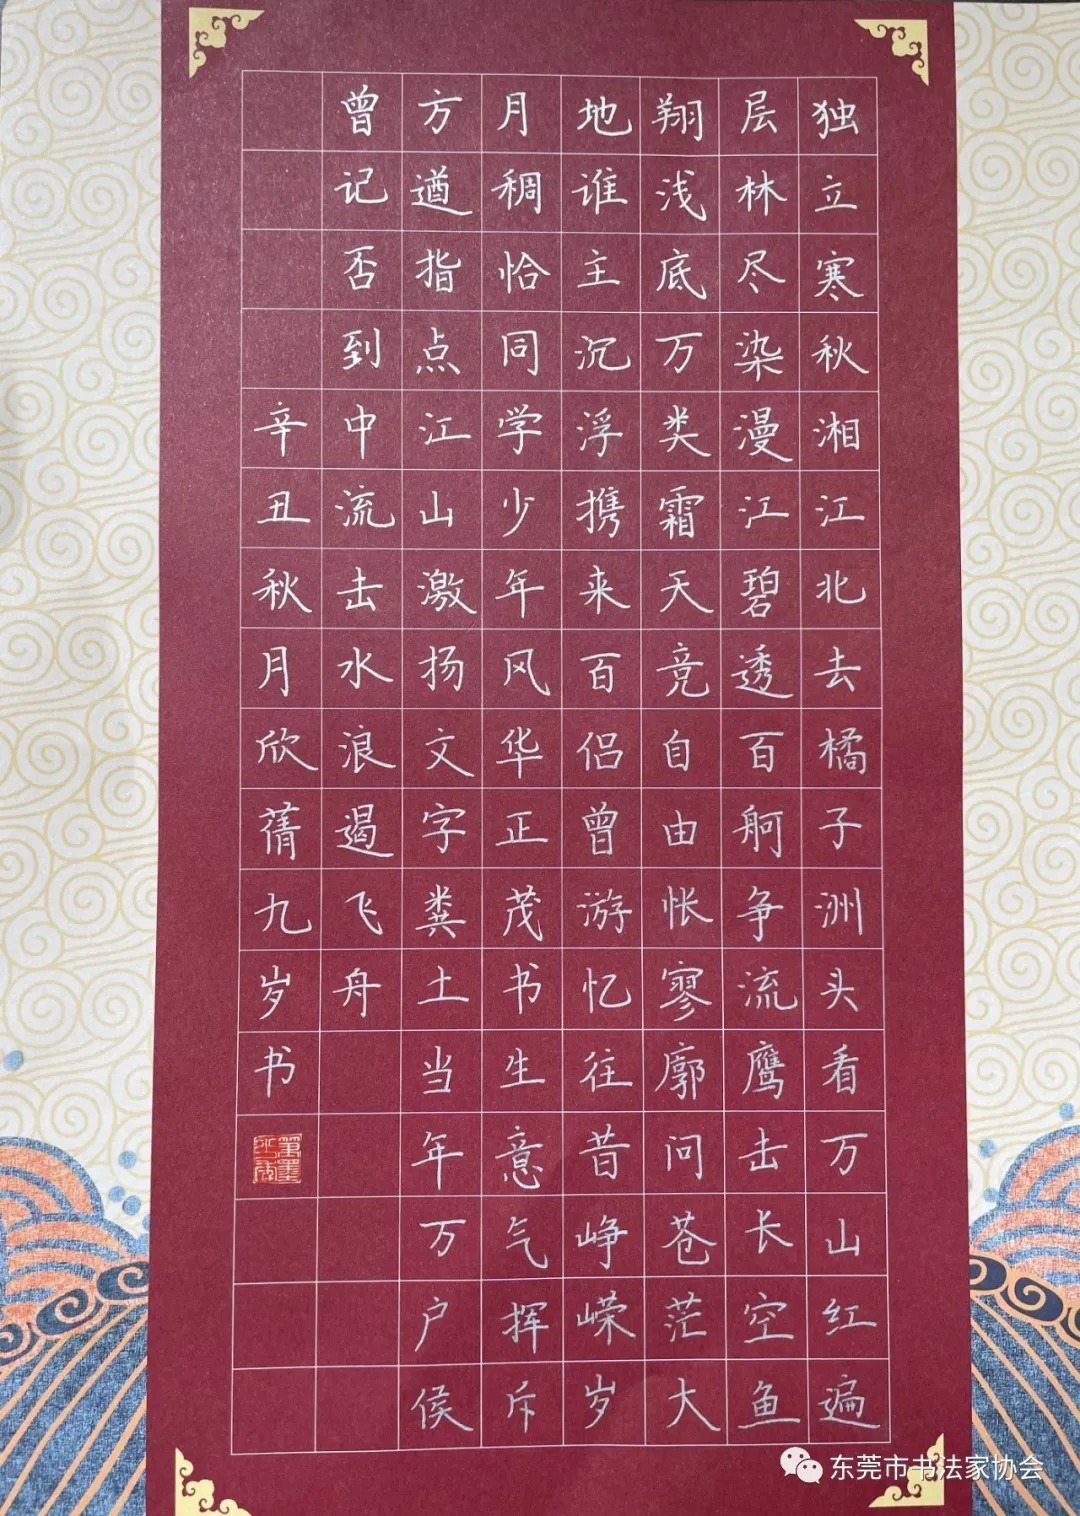 独立寒秋湘江北去橘子洲头看万山红遍
层林尽染漫江碧透百舸争流鹰击长空鱼
翔浅底万类霜天竞自由怅寥廓问苍茫大
地谁主沉浮携来百侣曾游忆往昔峥嵘岁
月稠恰同学少年风华正茂书生意气挥斥
方遒指点江山激扬文字粪土当年万户侯
曾记否到中流击水浪遏飞舟
辛丑秋月欣蒨九岁书
东莞市书法家协会